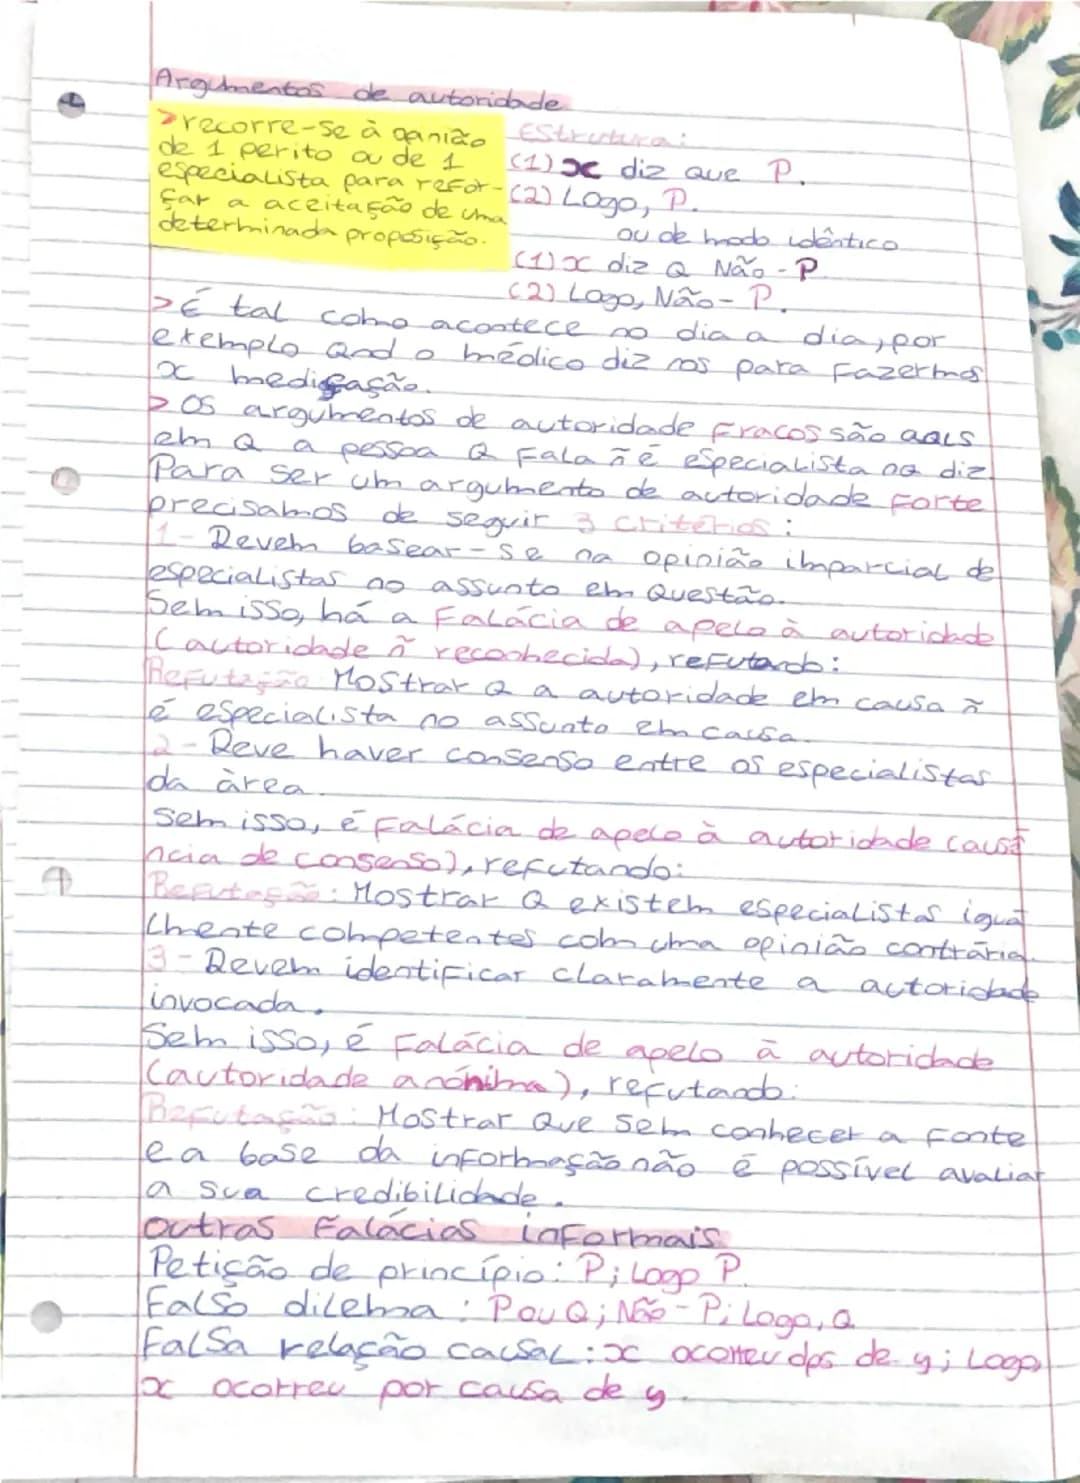 Argumentos de autoridade
>recorre-se à opinião
de 1 perito ou de 1
especialista para refor-
çar a aceitação de uma
determinada proposição.
Estrutura:
(1) x diz que P.
(2) Logo, P.
ou de modo idêntico
(1) x diz Q Não-P
(2) Logo, Não-P.
>É tal como acontece no dia a dia, por
exemplo Qnd o médico diz nos para fazermos
x medicação.
>Os argumentos de autoridade fracos são aqls
em Q a pessoa Q fala ñ é especialista no q diz
Para ser um argumento de autoridade forte
precisamos de seguir 3 critérios:
1- Devem basear-se na opinião imparcial de
especialistas no assunto em Questão.
Sem isso, há a Falácia de apelo à autoridade
(autoridade ñ reconhecida), refutando:
Refutação Mostrar Q a autoridade em causa ñ
é especialista no assunto em causa.
2- Deve haver consenso entre os especialistas
da àrea.
Sem isso, é falácia de apelo à autoridade (ausê
ncia de consenso), refutando:
Refutação: Mostrar Q existem especialistas igua
lmente competentes com uma opinião contrária.
3- Devem identificar claramente a autoridade
invocada.
Sem isso, é Falácia de apelo à autoridade
(autoridade anónima), refutando:
Refutação: Mostrar Que sem conhecer a fonte
e a base da informação não é possível avaliar
a sua credibilidade.
outras Falácias informais
Petição de princípio: P; Logo P.
Falso dilema: P ou Q; Não-P; Logo, Q
Falsa relação causal: x ocorreu dps de y; Logo,
x ocorreu por causa de y.